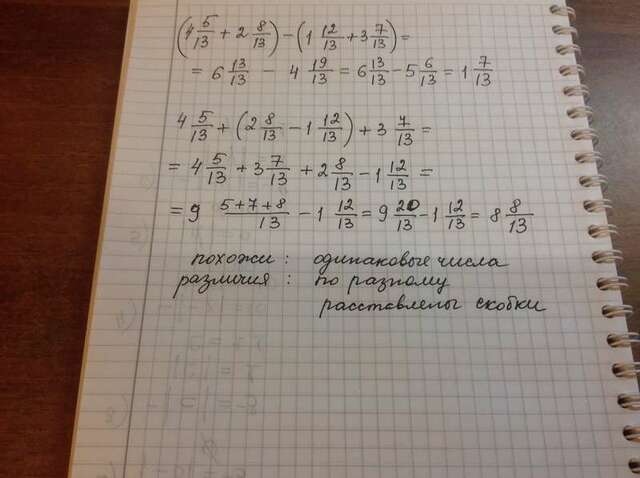 (4 5/13 + 2 8/13) − (1 12/13 + 3 7/13) =
= 6 13/13 − 4 19/13 = 6 13/13 − 5 6/13 = 1 7/13
4 5/13 + (2 8/13 − 1 12/13) + 3 7/13 =
= 4 5/13 + 3 7/13 + 2 8/13 − 1 12/13 =
= 9 5+7+8/13 − 1 12/13 = 9 20/13 − 1 12/13 = 8 8/13
похожи : одинаковые числа
различия : по разному
расставлены скобки